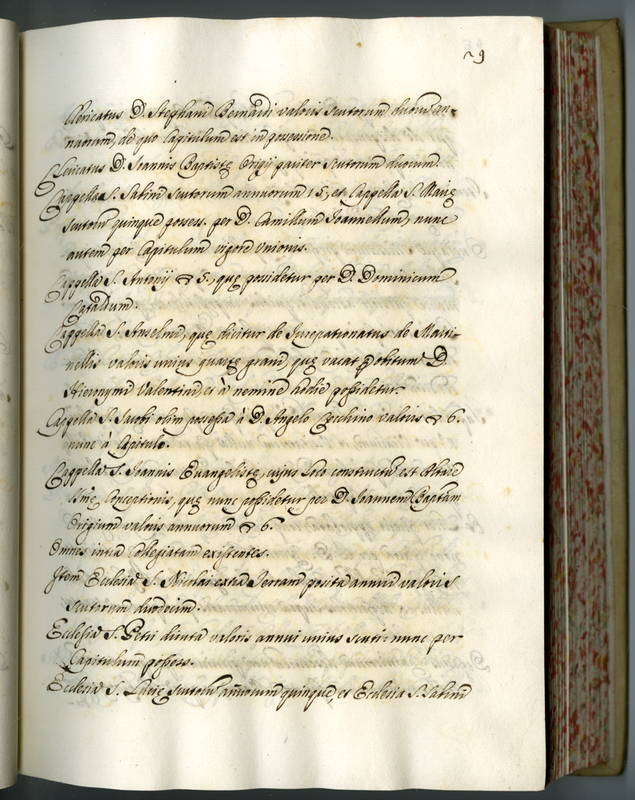 29
Clericatus D. Stephani Bernardi valoris scutorum duorum an-
nuorum, de quo Capitulum est in possessione.
Clericatus D. Joannis Baptistę Origij pariter scutorum duorum.
Cappella S. Sabini scutorum annuorum 15, et Cappella S. Marię
scutorum quinque possess. per D. Camillum Joannellum, nunc
autem per Capitulum vigore Unionis.
Cappella S. Antonij 5., quę possidetur per D. Dominicum
Cataldum.
Cappella S. Anselmi, quę dicitur de Jurepatronatus de Marti-
nellis valoris unius quartę grani quę vacat obitum D.
Hieronymi Valentini, et à nemine hodie possidetur.
Cappella S. Jacobi olim possessa à D. Angelo Cecchino valoris 6.
nunc à Capitulo.
Cappella S. Joannis Evangelistę, cujus loco constructum est Altare
Conceptionis, quę nunc possidetur per D. Joannem Baptam
Origium valoris annuorum 6.
Omnes intra Collegiatam existentes.
Item Ecclesia S. Nicolai extra Terram posita annui valoris
scutorum duodecim.
Ecclesia S. Petri diruta valoris annui unius scuti: nunc per
Capitulum possess.
Ecclesia S. Lucię scutorum annuorum quinque, et Ecclesia S. Sabini